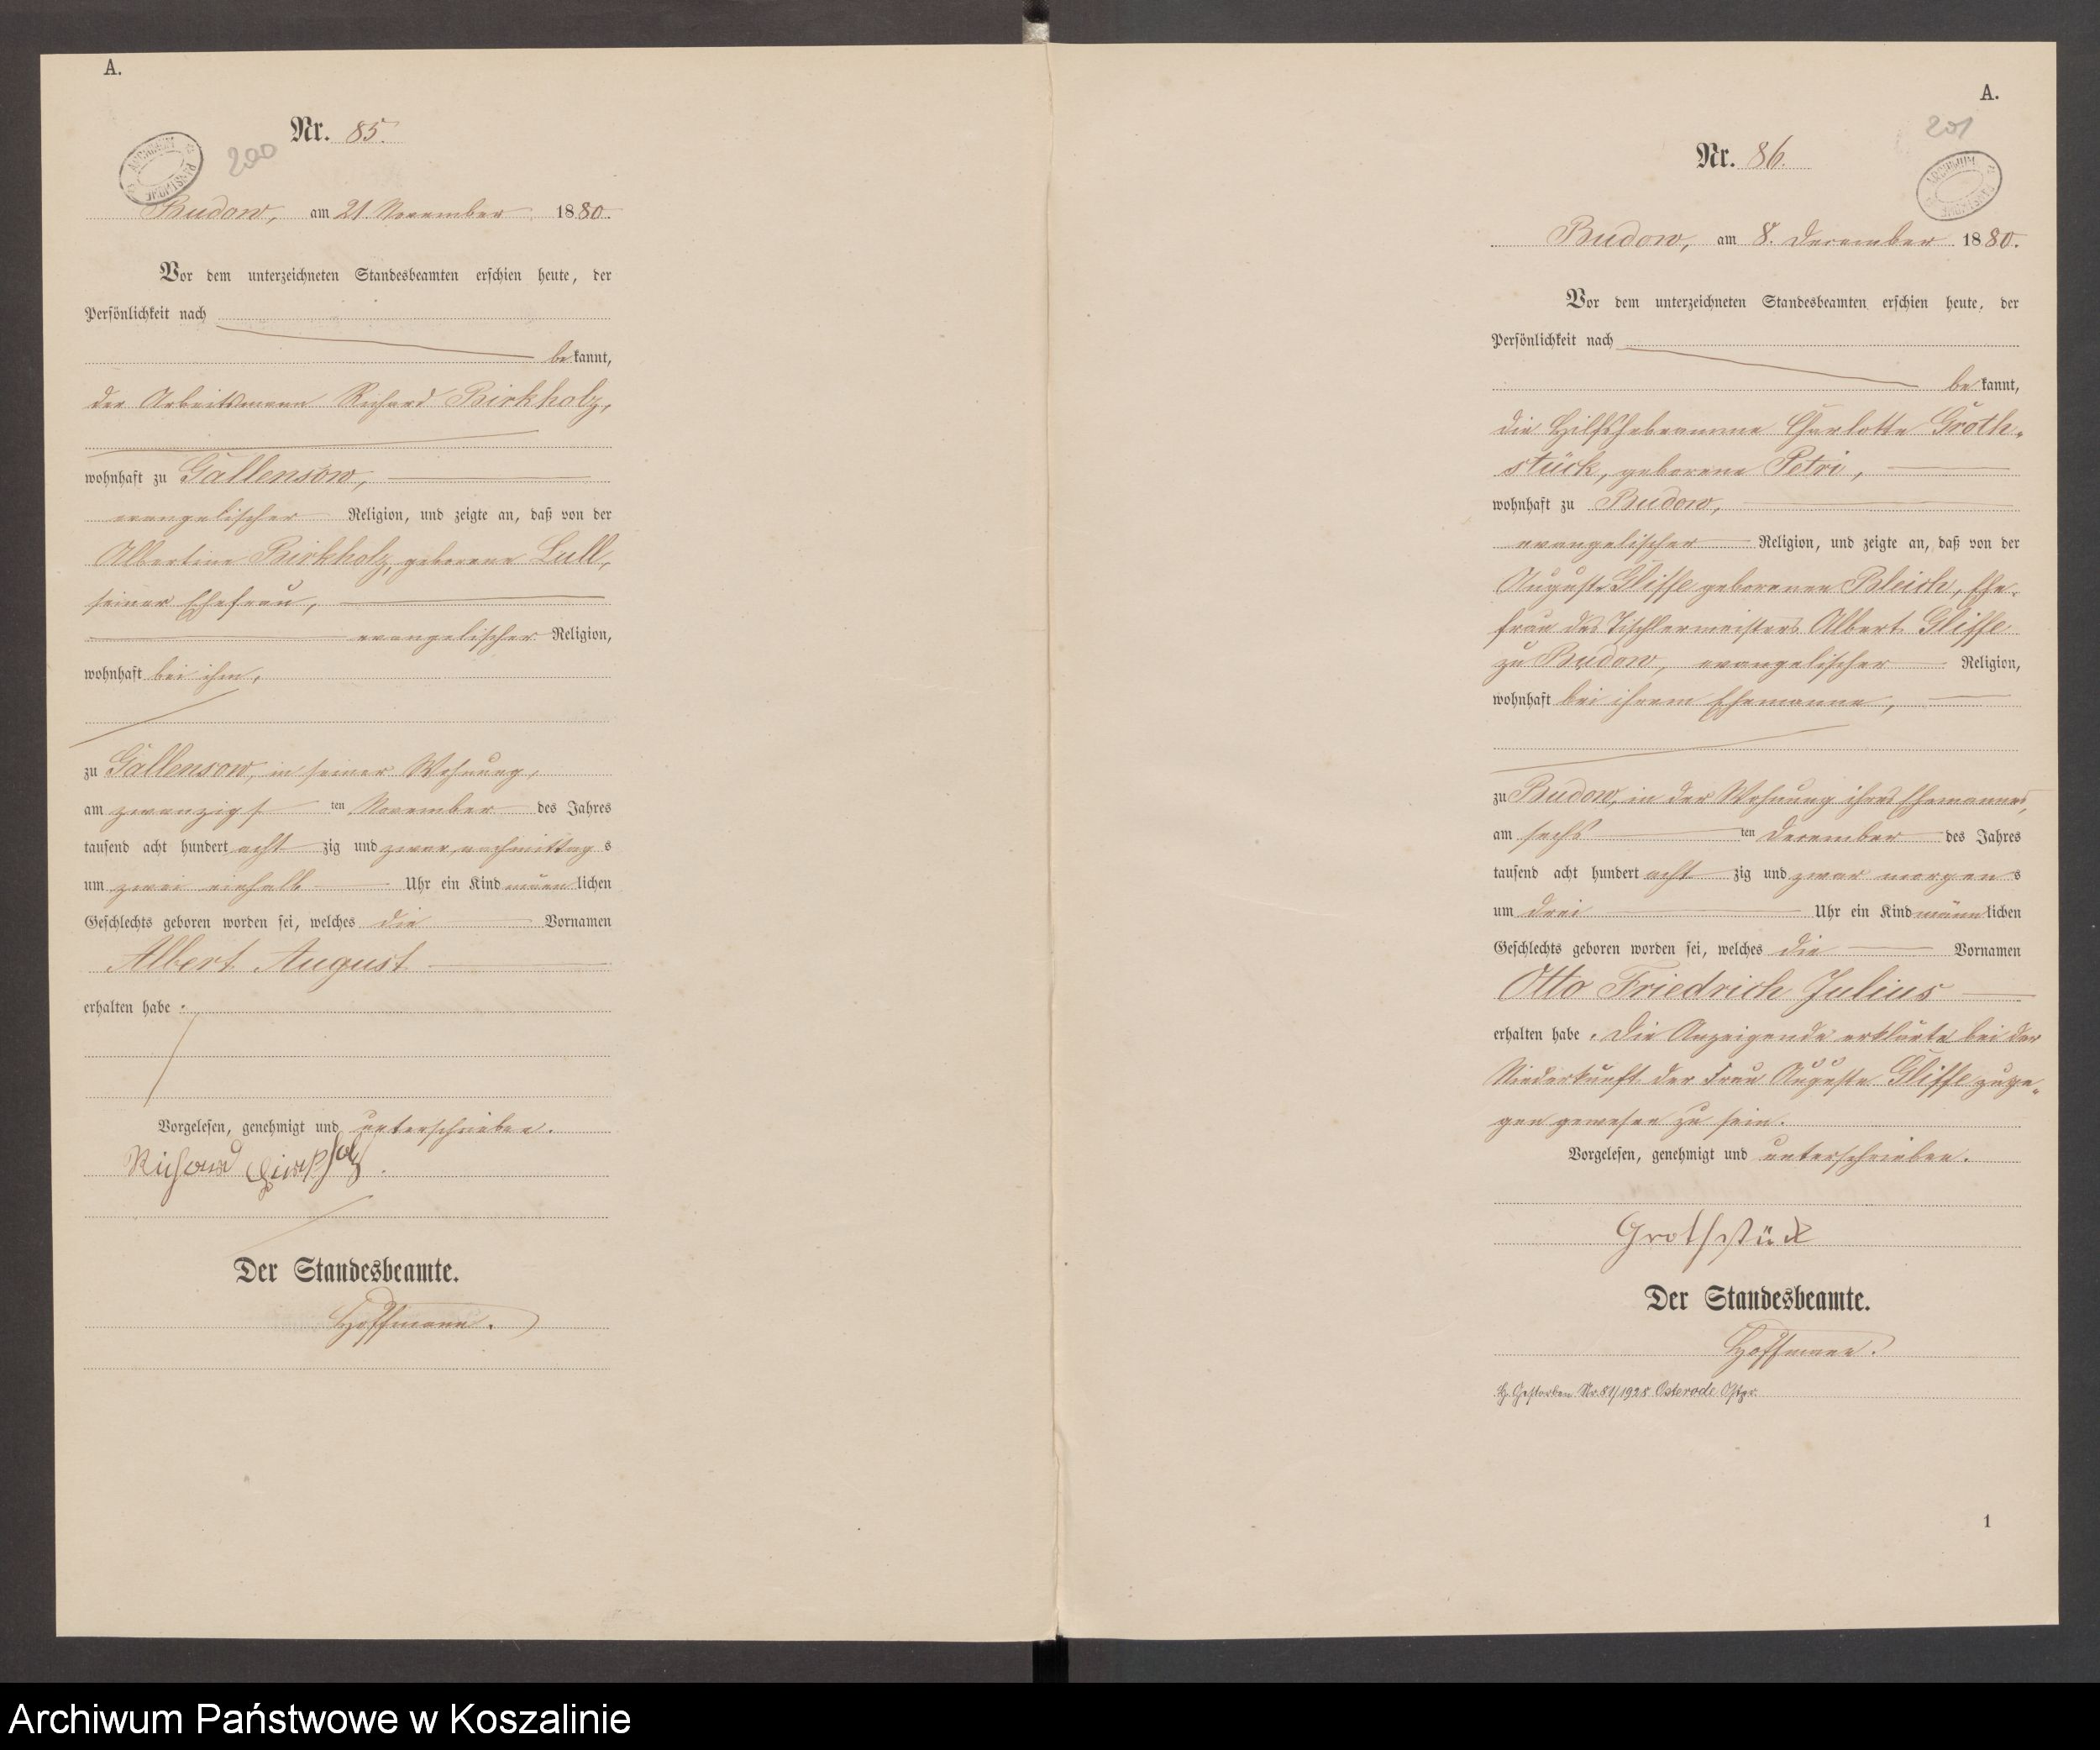 A.
Nr. 85.
200
ARCHIWUM PAŃSTWOWE
Budow, am 21. November 1880.
Vor dem unterzeichneten Standesbeamten erschien heute, der
Persönlichkeit nach
bekannt,
der Arbeitsmann Richard Birkholz,
wohnhaft zu Gallensow,
evangelischer Religion, und zeigte an, daß von der
Albertine Birkholz, geborene Lull,
seiner Ehefrau,
evangelischer Religion,
wohnhaft bei ihm,
zu Gallensow, in seiner Wohnung,
am zwanzigsten November des Jahres
tausend acht hundert achtzig und zwar nachmittags
um zwei einhalb Uhr ein Kind männlichen
Geschlechts geboren worden sei, welches die Vornamen
Albert August
erhalten habe.
Vorgelesen, genehmigt und unterschrieben.
Richard Birkholz.
Der Standesbeamte.
Hoffmann.
A.
201
Nr. 86.
ARCHIWUM PAŃSTWOWE
Budow, am 8. December 1880.
Vor dem unterzeichneten Standesbeamten erschien heute, der
Persönlichkeit nach
bekannt,
die Hilfshebeamme Charlotte Groth-
stück, geborene Petri,
wohnhaft zu Budow,
evangelischer Religion, und zeigte an, daß von der
Auguste Gliffe geborenen Bleich, Ehe-
frau des Tischlermeisters Albert Gliffe
zu Budow, evangelischer Religion,
wohnhaft bei ihrem Ehemanne,
zu Budow, in der Wohnung ihres Ehemannes,
am sechsten December des Jahres
tausend acht hundert achtzig und zwar morgens
um drei Uhr ein Kind männlichen
Geschlechts geboren worden sei, welches die Vornamen
Otto Friedrich Julius
erhalten habe. Die Anzeigende erklärte bei der
Niederkunft der Frau Auguste Gliffe zuge-
gen gewesen zu sein.
Vorgelesen, genehmigt und unterschrieben.
Grothstück
Der Standesbeamte.
Hoffmann.
Gestorben Nr. 81/1928 Osterode Ostpr.
1
Archiwum Państwowe w Koszalinie